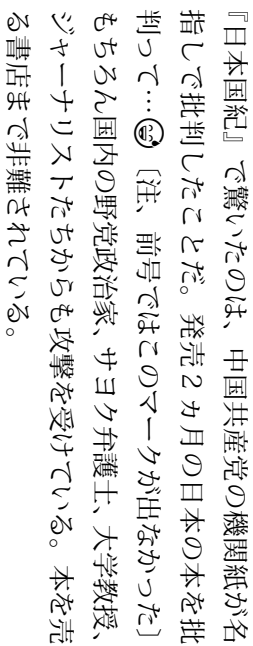 『日本国紀』で驚いたのは、中国共産党の機関紙が名
指しで批判したことだ。発売２ヵ月の日本の本を批
判って…😂〔注、前号ではこのマークが出なかった〕
もちろん国内の野党政治家、サヨク弁護士、大学教授、
ジャーナリストたちからも攻撃を受けている。本を売
る書店まで非難されている。